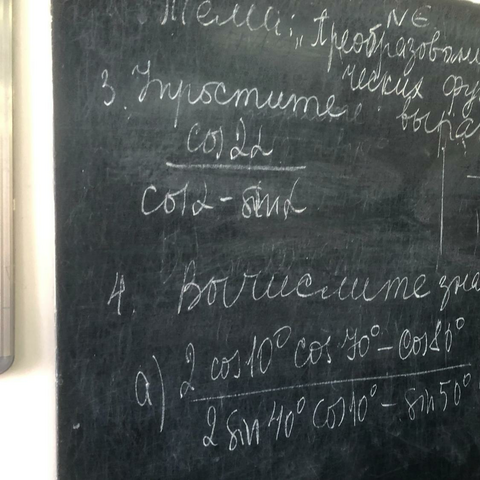 Тема: „Преобразован
NE
ческих фу
3. Упростите выра
cos2α
cosα - sinα
4. Вычислите зна
а) 2 cos10° cos 70° - cos80°
2 sin 40° cos10° - sin 50°